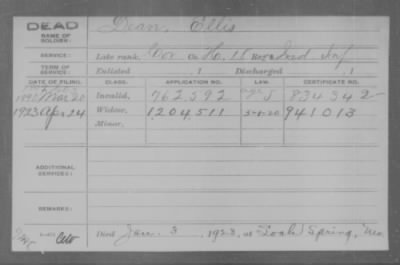 DEAD
NAME OF SOLDIER:
Dean, Ellis
SERVICE:
Late rank, Cor. Co. H, 18 Reg't Ind Inf
TERM OF SERVICE:
Enlisted 1 Discharged 1
DATE OF FILING. CLASS. APPLICATION NO. LAW. CERTIFICATE NO.
Mar 20 Invalid, 762,592 834342
1923 Apr 24 Widow, 1204,511 5-1-20 941013
Minor,
ADDITIONAL SERVICES:
REMARKS:
Died Jan. 3, 1923, at Spring, Mo.